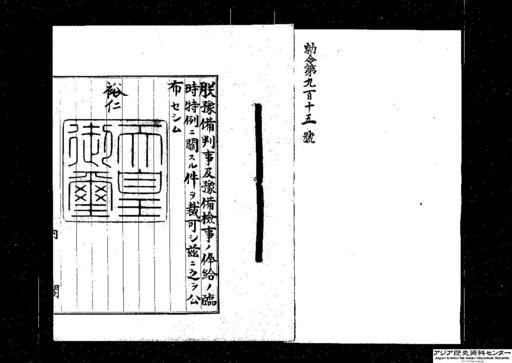 勅令第九百十五號
朕豫備判事及豫備檢事ノ俸給ノ臨
時特例ニ關スル件ヲ裁可シ茲ニ之ヲ公
布セシム
裕仁
天皇
御璽
アジア歴史資料センター
Japan Center for Asian Historical Records